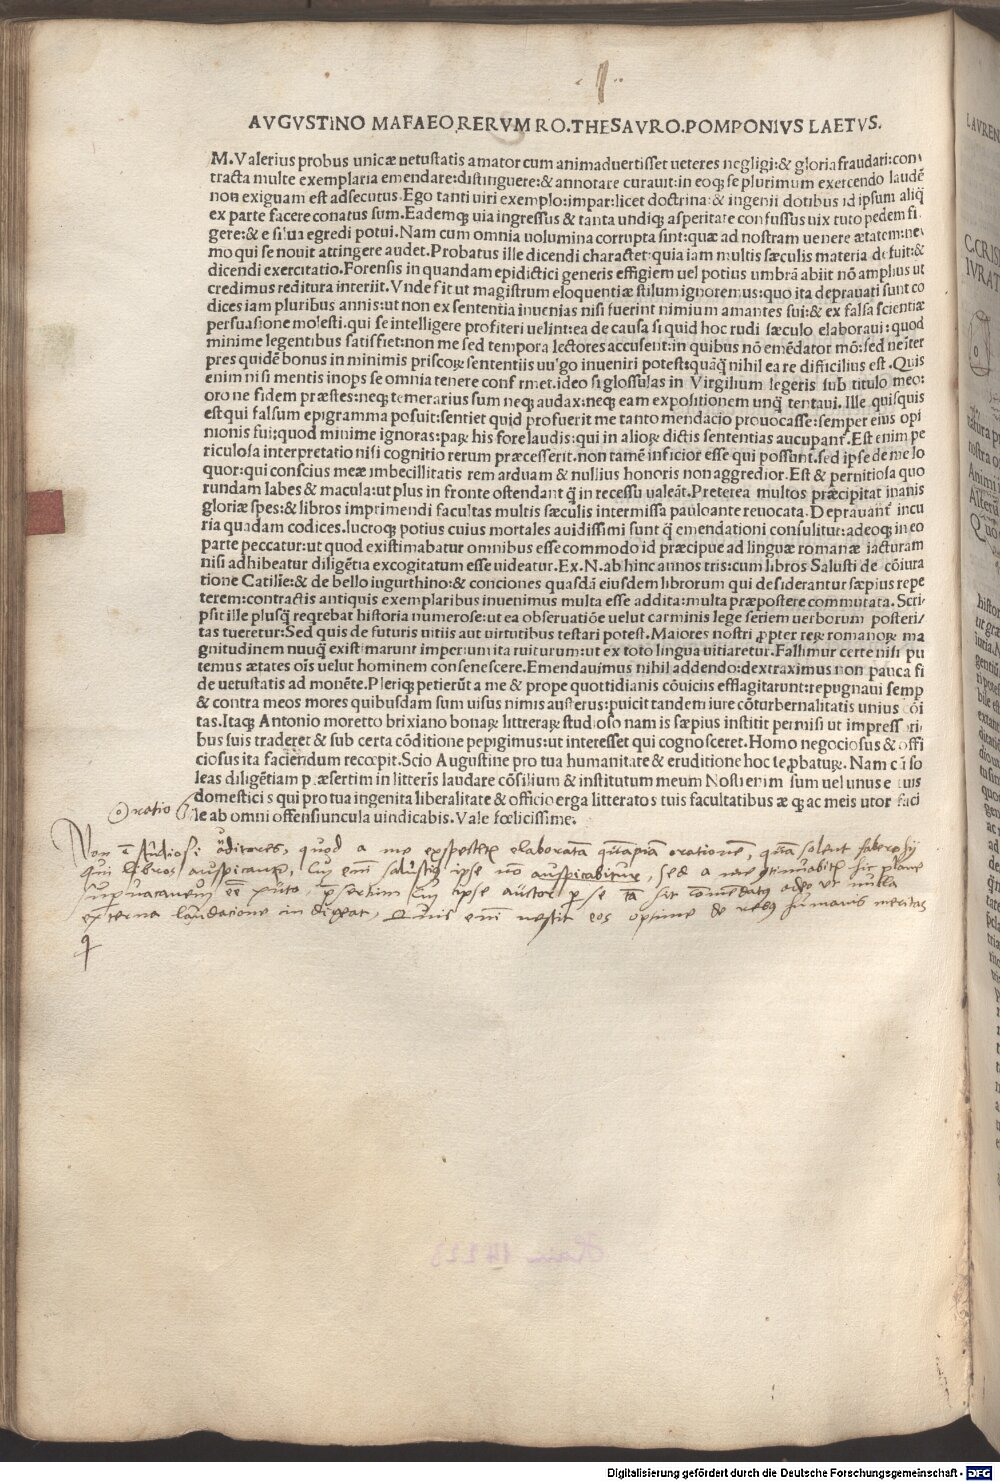 AVGVSTINO MAFAEO.RERVM RO.THESAVRO.POMPONIVS LAETVS.
M.Valerius probus unicæ uetustatis amator cum animaduertisset ueteres negligi:& gloria fraudari:con
tracta multe exemplaria emendare:distinguere:& annotare curauit:in eoq; se plurimum exercendo laudẽ
non exiguam est adsecutus.Ego tanti uiri exemplo:impar:licet doctrina:& ingenii dotibus id ipsum aliq̃
ex parte facere conatus sum.Eademq; uia ingressus & tanta undiq; asperitate confussus uix tuto pedem fi
gere:& e silua egredi potui.Nam cum omnia uolumina corrupta sint:quæ ad nostram uenere ætatem:ne
mo qui se nouit attingere audet.Probatus ille dicendi character:quia iam multis sæculis materia defuit:&
dicendi exercitatio.Forensis in quandam epidictici generis effigiem uel potius umbrã abiit nõ amplius ut
credimus reditura interiit.Vnde fit ut magistrum eloquentiæ stilum ignoremus:quo ita deprauati sunt co
dices iam pluribus annis:ut non ex sententia inuenias nisi fuerint nimium amantes sui:& ex falsa scientiæ
persuasione molesti.qui se intelligere profiteri uelint:ea de causa si quid hoc rudi sæculo elaboraui:quod
minime legentibus satisfiet:non me sed tempora lectores accusent:in quibus nõ emẽdator mõ:sed neĩter
pres quidẽ bonus in minimis priscoꝝ sententiis uulgo inueniri potest:quãq̃ nihil ea re difficilius est.Quis
enim nisi mentis inops se omnia tenere confirmet.ideo si glossulas in Virgilium legeris sub titulo meo:
oro ne fidem præstes:neq; temerarius sum neq; audax:neq; eam expositionem unq̃ tentaui.Ille quisquis
est qui falsum epigramma posuit:sentiet quid profuerit me tanto mendacio prouocasse:semper eius opi
nionis fui:quod minime ignoras:paꝝ his fore laudis:qui in alioꝝ dictis sententias aucupant̃.Est enim pe
riculosa interpretatio nisi cognitio rerum præcesserit.non tamẽ inficior esse qui possunt.sed ipse de me lo
quor:qui conscius meæ imbecillitatis rem arduam & nullius honoris non aggredior.Est & pernitiosa quo
rundam labes & macula:ut plus in fronte ostendant q̃ in recessu ualeãt.Preterea multos præcipitat inanis
gloriæ spes:& libros imprimendi facultas multis sæculis intermissa pauloante reuocata.Deprauant̃ incu
ria quadam codices.lucroq; potius cuius mortales auidissimi sunt q̃ emendationi consulitur:adeoq; in eo
parte peccatur:ut quod existimabatur omnibus esse commodo id præcipue ad linguæ romanæ iacturam
nisi adhibeatur diligẽtia excogitatum esse uideatur.Ex.N.ab hinc annos tris:cum libros Salusti de cõiura
tione Catilie:& de bello iugurthino:& conciones quasdã eiusdem librorum qui desiderantur sæpius repe
terem:contractis antiquis exemplaribus inuenimus multa esse addita:multa præpostere commutata.Scri
psit ille plusq̃ reqrebat historia numerose:ut ea obseruatiõe uelut carminis lege seriem uerborum posteri
tas tueretur:Sed quis de futuris uitiis aut uirtutibus testari potest.Maiores nostri ꝓpter reꝝ romanoꝝ ma
gnitudinem nuuq̃ existimarunt imperium ita ruiturum:ut ex toto lingua uitiaretur.Fallimur certe nisi pu
temus ætates oĩs uelut hominem consenescere.Emendauimus nihil addendo:dextraximus non pauca fi
de uetustatis ad monẽte.Pleriq; petierũt a me & prope quottidianis cõuiciis efflagitarunt:repugnaui semp
& contra meos mores quibusdam sum uisus nimis austerus:puicit tandem iure cõturbernalitatis unius cõi
tas.Itaq; Antonio moretto brixiano bonaꝝ littreraꝝ studioso nam is sæpius institit permisi ut impressori
bus suis traderet & sub certa cõditione pepigimus:ut interesset qui cognosceret.Homo negociosus & offi
ciosus ita faciendum recœpit.Scio Augustine pro tua humanitate & eruditione hoc te ꝓbatuꝝ.Nam cũ so
leas diligẽtiam præsertim in litteris laudare cõsilium & institutum meum Nosti enim sum uel unus e tuis
domesticis qui pro tua ingenita liberalitate & officio erga litteratos tuis facultatibus æq; ac meis utor faci
le ab omni offensiuncula uindicabis.Vale fœlicissime:
Oratio
Non ẽ studiosi auditores, quod a me exspectetis elaboratã quãpiã orationẽ, quã solent
qui libros auspicantur, cũ enĩ salustiũ ipse nõ auspicabitur, sed a me continuabitur sic plane
supervacaneum eẽ puto, p̃sertim cũ ipse auctor per se tã sit cõmendatus adeo ut nulla
externa laudatione indigeat, Quis enĩ nescit eos optime de rebus humanis meritos